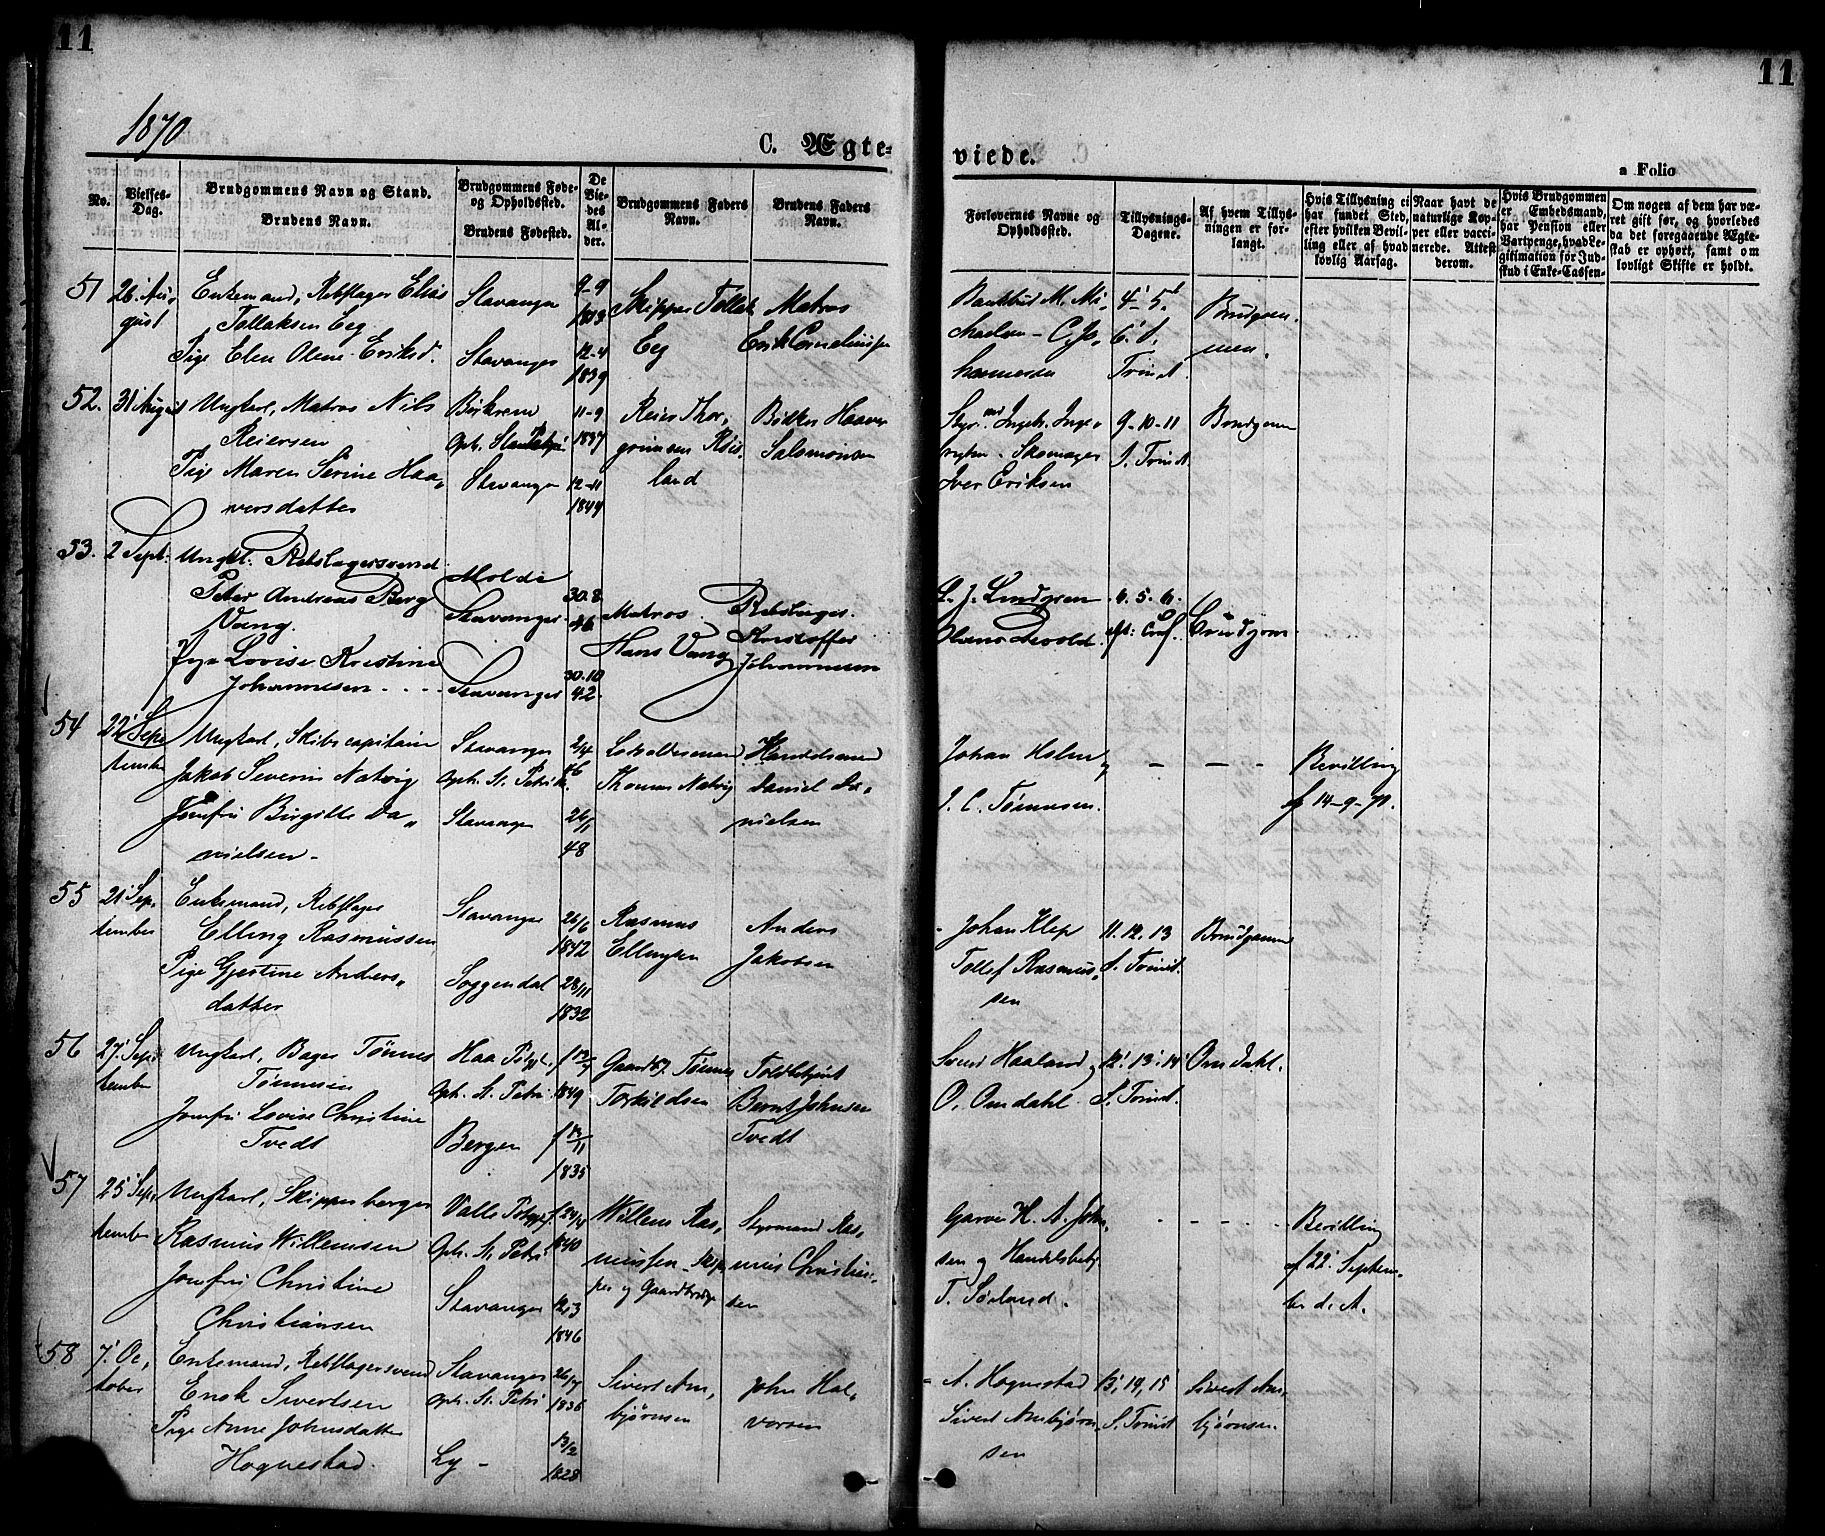 11
11
1870
C. Ægte-
viede.
a Folio
No.
Vielses-
Dag.
Brudgommens Navn og Stand.
Brudens Navn.
Brudgommens Føde-
og Opholdssted.
Brudens Fødested.
De
Vie-
des
Al-
der.
Brudgommens Faders
Navn.
Brudens Faders
Navn.
Forlovernes Navne og
Opholdssted.
Tillysnings-
Dagene.
Af hvem Tillys-
ningen er for-
langt.
Hvis Tillysning ei
har fundet Sted,
efter hvilken Bevil-
ling eller af hvad
lovlig Aarsag.
Naar havt de
naturlige Kop-
per eller vacci-
nerede. Attest
derom.
Hvis Brudgommen
er Embedsmand,
har Pension eller
Vartpenge, hvad Le-
gitimation for Ind-
skud i Enke-Cassen-
Om nogen af dem har væ-
ret gift før, og hvorledes
da det foregaaende Ægte-
skab er ophørt, samt om
lovligt Skifte er holdt.
51
26. Au-
gust
Enkemand, Rebslager Elias
Tollaksen Eeg
Pige Elen Olene Eriksd.
Stavanger
Stavanger
9-9
1813
12-4
1839
Skipper Tollak
Eeg
Matros
Erik Corneliussen
4' 5'
6' S.
Trinit.
Brudgom-
men.
52.
31 August
Ungkarl, Matros Nils
Reiersen
Pige Maren Serine Haa-
versdatter
Stavanger
11-9
1837
12-11
1844
Reier Thor-
grimsen Røis-
land
Bødker Haaver
Salomonsen
Iver Eriksen
9-10-11
S. Trinit.
Brudgom
53.
2 Sept.
Ungk. Rebslagersvend
Peter Andreas Berg
Vang.
Pige Lovise Kristine
Johannesen
Molde
Stavanger
Stavanger
30.8
46
30.10
42.
Matros
Hans Vang
Rebslager
Kristoffer
Johannesen
L. J. Lindgren
4. 5. 6.
Brudgom
54
22' Sep-
tember
Ungkarl, Skibscapitain
Jakob Severin Natvig
Jomfru Birgitte Da-
nielsen
Stavanger
Oph. St. Petri
Stavanger
2/4
46
26/11
48
Thomas Natvig
Handelsmand
Daniel Da-
nielsen
Johan Holm
J. C. Tönnesen.
- - -
Bevilling
af 14-9-70.
55
21' Sep-
tember
Enkemand, Rebslager
Elling Rasmussen
Pige Gjertine Anders-
datter
Stavanger
Soggendal
26/6
1842
28/11
1832
Rasmus
Ellingsen
Anders
Jakobsen
Johan Klep
Tollef Rasmus-
sen
11. 12. 13
S. Trinit.
Brudgommen
56
27. Sep-
tember
Ungkarl, Bager Tönnes
Tönnesen
Jomfru Lovise Christine
Tvedt
Haa
Oph. St. Petri
Bergen
1849
1835
Tönnes
Torkildsen
Toldbetjent
Bernt Johnsen
Tvedt
Svend Haaland
O. Omdahl
12'. 13'. 14'
S. Trinit.
Omdahl.
57
25 Sep-
tember
Ungkarl, Skipperborger
Rasmus Willemsen
Jomfru Christine
Christiansen
Valle
Oph. St. Petri
Stavanger
24/4
1840
12/3
1846
Willem Ras-
mussen - Skip-
per og Gaardbruger
Styrmand Ras-
mus Christian-
sen
Garver H. A. John-
sen og Handelsbetj.
T. Sörland.
- - - -
Bevilling
af 22' Septem-
ber d. A.
58
7' Oc-
tober
Enkemand, Rebslagersvend
Enok Sivertsen
Pige Anne Johnsdatter
Hognestad
Stavanger
Oph. St. Petri
Ly -
26/7
1836
13/2
1828
Sivert Am-
bjørnsen
John Hal-
vorsen
A. Hognestad
Sivert Ambjørn-
sen
13', 14, 15
S. Trinit.
Sivert Am-
bjørnsen